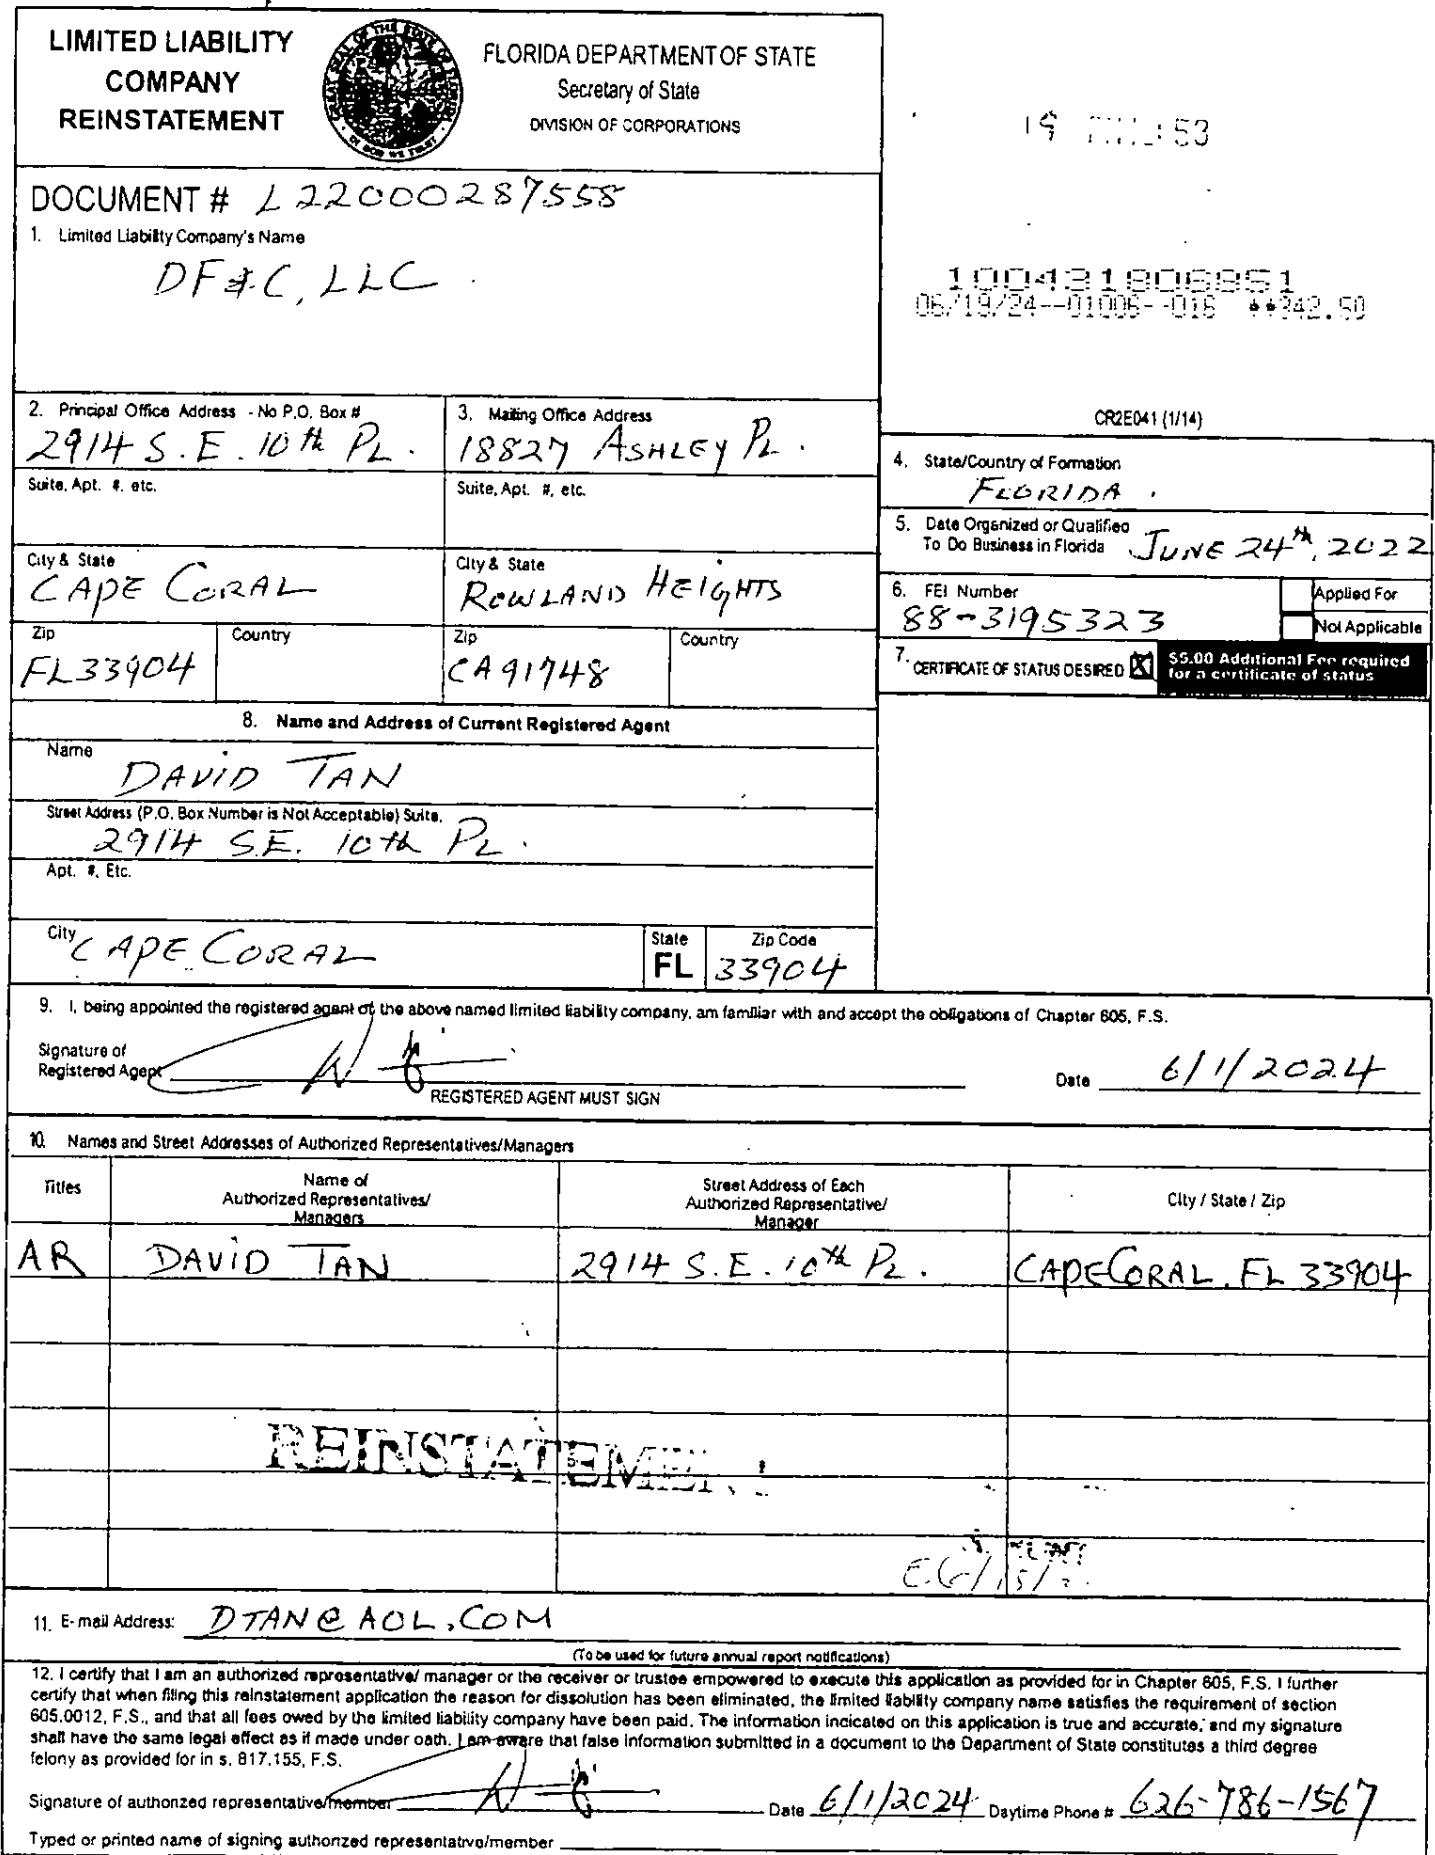 LIMITED LIABILITY
COMPANY
REINSTATEMENT
FLORIDA DEPARTMENT OF STATE
Secretary of State
DIVISION OF CORPORATIONS
DOCUMENT # L22000287558
1. Limited Liability Company's Name
DF&C, LLC
100431806851
06/19/24--01006--016 **342.50
2. Principal Office Address - No P.O. Box #
2914 S.E. 10th PL.
Suite, Apt. #, etc.
City & State
CAPE CORAL
Zip
FL33904
Country
3. Mailing Office Address
18827 ASHLEY PL.
Suite, Apt. #, etc.
City & State
ROWLAND HEIGHTS
Zip
CA91748
Country
CR2E041 (1/14)
4. State/Country of Formation
FLORIDA.
5. Date Organized or Qualified
To Do Business in Florida JUNE 24th, 2022
6. FEI Number
88-3195323
Applied For
Not Applicable
7. CERTIFICATE OF STATUS DESIRED X $5.00 Additional Fee required
for a certificate of status
8. Name and Address of Current Registered Agent
Name
DAVID TAN
Street Address (P.O. Box Number is Not Acceptable) Suite,
2914 S.E. 10th PL.
Apt. #, Etc.
City CAPE CORAL
State
FL
Zip Code
33904
9. I, being appointed the registered agent of the above named limited liability company, am familiar with and accept the obligations of Chapter 605, F.S.
Signature of
Registered Agent
Date 6/1/2024
REGISTERED AGENT MUST SIGN
10. Names and Street Addresses of Authorized Representatives/Managers
Titles
Name of
Authorized Representatives/
Managers
Street Address of Each
Authorized Representative/
Manager
City / State / Zip
AR DAVID TAN 2914 S.E. 10th PL. CAPE CORAL, FL 33904
REINSTATEMEN
11. E-mail Address: DTAN@AOL.COM
(To be used for future annual report notifications)
12. I certify that I am an authorized representative/ manager or the receiver or trustee empowered to execute this application as provided for in Chapter 605, F.S. I further
certify that when filing this reinstatement application the reason for dissolution has been eliminated, the limited liability company name satisfies the requirement of section
605.0012, F.S., and that all fees owed by the limited liability company have been paid. The information indicated on this application is true and accurate, and my signature
shall have the same legal effect as if made under oath. I am aware that false information submitted in a document to the Department of State constitutes a third degree
felony as provided for in s. 817.155, F.S.
Signature of authorized representative/member Date 6/1/2024 Daytime Phone # 626-786-1567
Typed or printed name of signing authorized representative/member